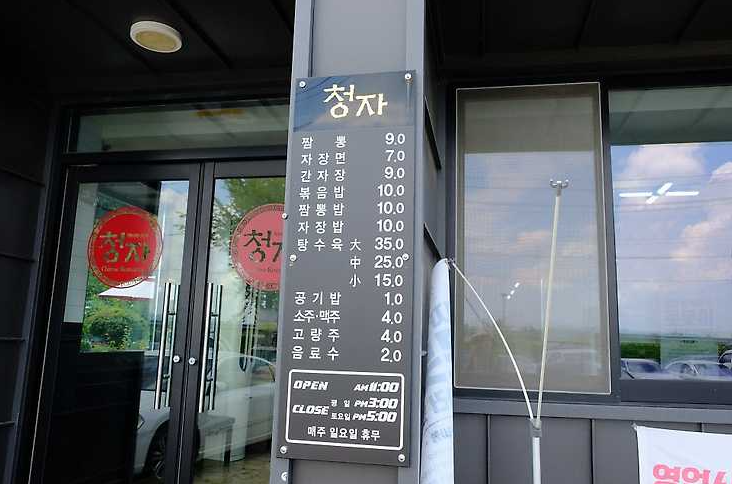 청자
짬 뽕 9.0
자장면 7.0
간자장 9.0
볶음밥 10.0
짬뽕밥 10.0
자장밥 10.0
탕수육 大 35.0
中 25.0
小 15.0
공기밥 1.0
소주·맥주 4.0
고량주 4.0
음료수 2.0
OPEN AM 11:00
CLOSE 평 일 PM 3:00
토요일 PM 5:00
매주 일요일 휴무
청자
청자